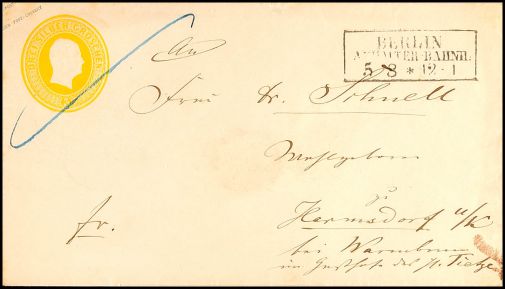 DREI SILBERGROSCHEN
BERLIN
ANHALTER-BAHNH.
5 8 * 12-1
An
Frau Dr. Schnell
Wohlgeboren
zu
fr.
Hermsdorf u/K
bei Warmbrunn
im Gasthofe des H. Tietze